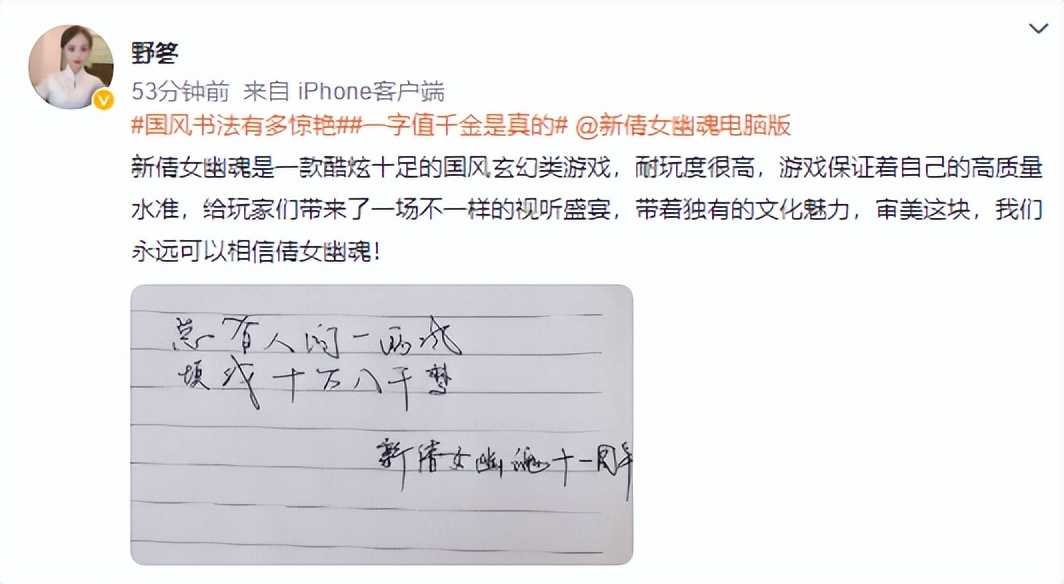 野笗
53分钟前 来自 iPhone客户端
#国风书法有多惊艳##一字值千金是真的# @新倩女幽魂电脑版
新倩女幽魂是一款酷炫十足的国风玄幻类游戏，耐玩度很高，游戏保证着自己的高质量
水准，给玩家们带来了一场不一样的视听盛宴，带着独有的文化魅力，审美这块，我们
永远可以相信倩女幽魂！
总有人间一两风
填我十万八千梦
新倩女幽魂十一周年